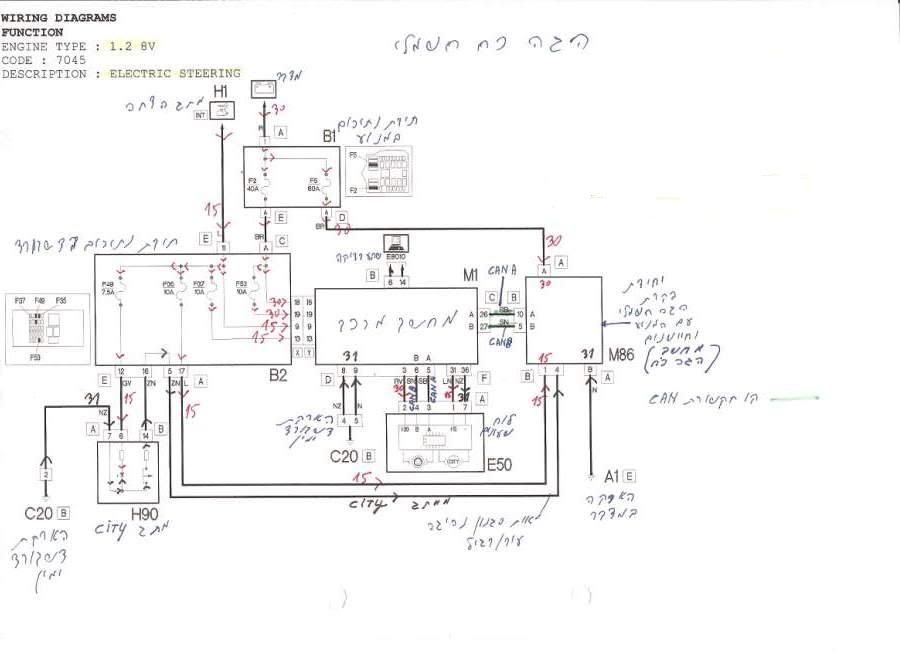 WIRING DIAGRAMS
FUNCTION
ENGINE TYPE : 1.2 8V
CODE : 7045
DESCRIPTION : ELECTRIC STEERING
הגה כח חשמלי
H1
INT
מתג הצתה
30
A
1
B1
תיבת נתיכים
במנוע
F5
F2
F2
40A
F5
60A
A
E
A
D
BR
BR
30
15
תיבת נתיכים
E
C
A
F49
7.5A
10A
F37
10A
F53
10A
F37 F49 F35
F53
30
30
15
15
18 18
19 19
9 9
13 13
X Y
B2
E8010
B
6 14
M1
מחשב מרכזי
31
B A
CAN A
C B
A 26 SB 10 A
B 27 SN 5 B
CAN B
30
A
A
30
יחידת
בקרת
הגה חשמלי
עם המנוע
וחיישנים
(מחשב
הגה כח)
M86
15
31
B 1 4
B
A
קו תקשורת CAN
E
12 16 5 17
A
GY ZN ZN L
NZ
31
15
15
A
7 6 14
B
2
C20 B
H90
מתג CITY
הארקת
דשבורד
ימין
D
8 9
NZ N
4 5
C20 B
הארקת
דשבורד
ימין
3 6 5 31 36
F
RV SN SB LN NZ
30
15
31
A
2 4 3 1 7
+30 B A +15 -
CITY
לוח
שעונים
E50
15
מתג CITY
15
N
A1 E
הארקה